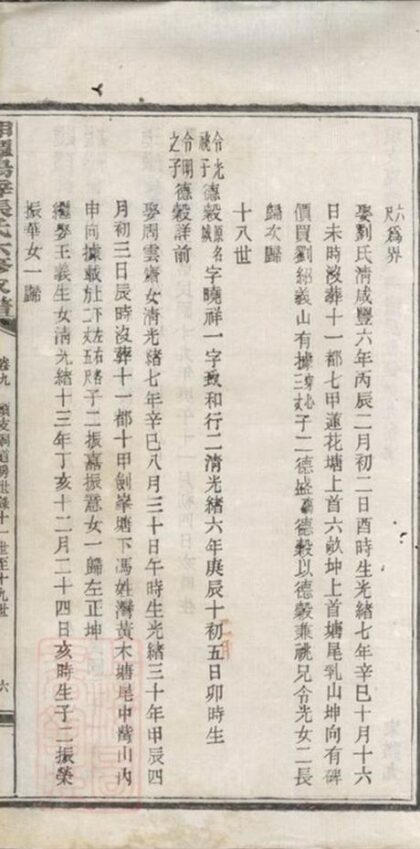 六尺為界
娶劉氏清咸豐六年丙辰二月初二日酉時生光緒七年辛巳十月十六
日未時沒葬十一都七甲蓮花塘上首六畝坤上首塘尾乳山坤向有碑
價買劉紹義山有據三子二德盛德穀以德穀兼祧兄令光女二長
歸次殤
十八世
令光祧子令開之子德穀原名字曉祥一字致和行二清光緒六年庚辰十初五日卯時生
德穀詳前
娶周雲齋女清光緒七年辛巳八月三十日午時生光緒三十年甲辰四
月初三日辰時沒葬十一都十甲劍峯塘下馮姓灣黃木塘尾中山內
申向據載子二振嘉振意女一歸左正坤
繼娶王義生女清光緒十三年丁亥十二月二十四日亥時生子二振榮
振華女一歸
卷九
世錄十一世至十九世
六